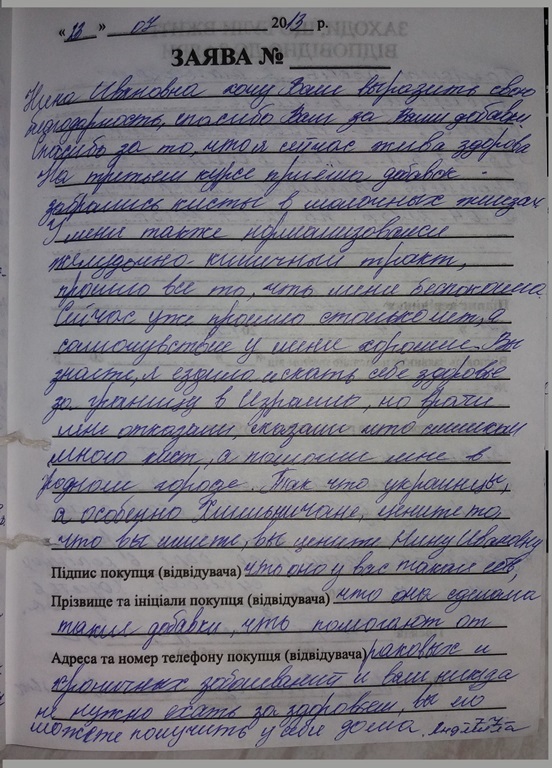 « 12 » 07 2013 р.
ЗАЯВА №
Нина Ивановна хочу Вам выразить свою
благодарность, спасибо Вам за Ваши добавки
Спасибо за то, что я сейчас жива здорова
На третьем курсе приёма добавок -
забрались кисты в молочных жилах
У меня также нормализовался
желудочно кишичный тракт,
прошло все то, что меня беспокоило.
Сейчас уже прошло столько лет, а
самочувствие у меня хорошее. Вы
знаете, я ездила искать себе здоровье
за границу в Израиль, но врачи
мне отказали, сказали что слишком
много кист, а помогли мне в
родном городе. Так что украинцы,
а особенно Хмильничане, цените то
что вы имеете, вы цените Нину Ивановну
Підпис покупця (відвідувача) что она у вас такая есть,
Прізвище та ініціали покупця (відвідувача) что она сделала
такие добавки, что помогают от
Адреса та номер телефону покупця (відвідувача) раковых и
хроничных заболеваний и вам никуда
не нужно ехать за здоровьем, вы его
можете получить у себя дома.